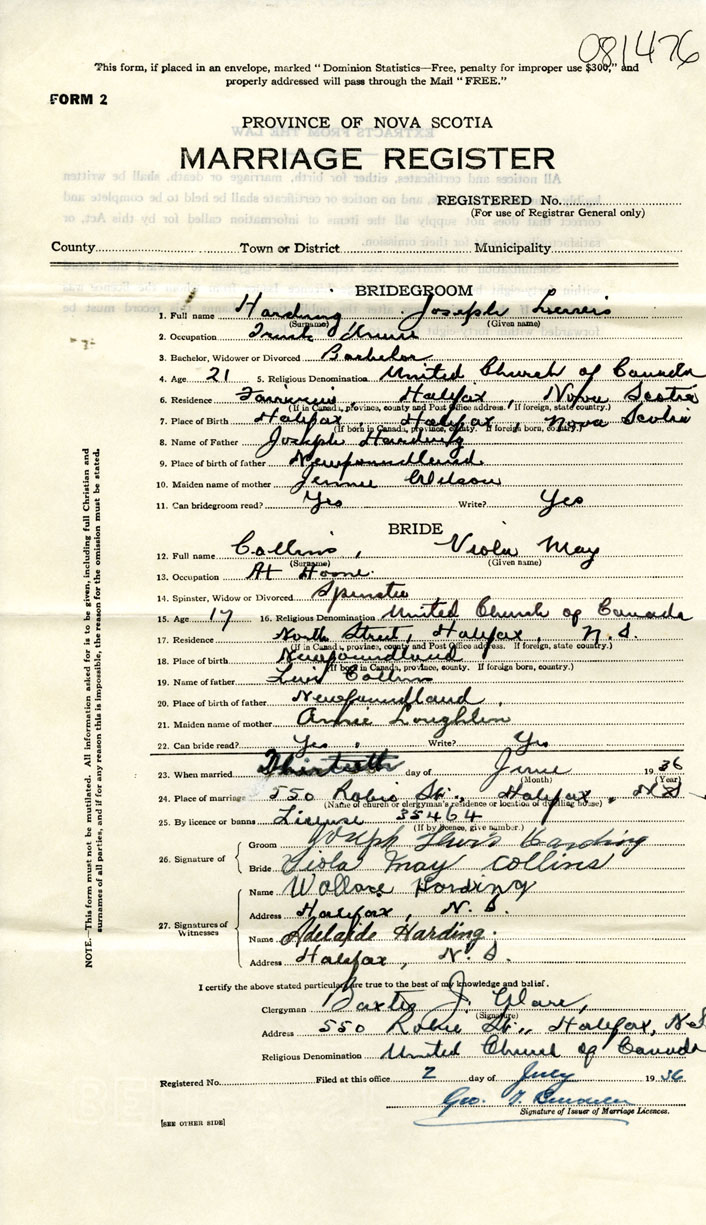 081476
This form, if placed in an envelope, marked "Dominion Statistics—Free, penalty for improper use $300," and
properly addressed will pass through the Mail "FREE."
FORM 2
PROVINCE OF NOVA SCOTIA
MARRIAGE REGISTER
REGISTERED No.
(For use of Registrar General only)
County Town or District Municipality
BRIDEGROOM
1. Full name Harding Joseph Lewis
(Surname) (Given name)
2. Occupation Truck
3. Bachelor, Widower or Divorced Bachelor
4. Age 21 5. Religious Denomination United Church of Canada
6. Residence Halifax, Nova Scotia
(If in Canada, province, county and Post Office address. If foreign, state country.)
7. Place of Birth Halifax, Halifax, Nova Scotia
(If born in Canada, province, county. If foreign born, country.)
8. Name of Father Joseph Harding
9. Place of birth of father Newfoundland
10. Maiden name of mother Jennie Wilson
11. Can bridegroom read? Yes Write? Yes
BRIDE
12. Full name Collins, Viola May
(Surname) (Given name)
13. Occupation At Home.
14. Spinster, Widow or Divorced Spinster
15. Age 17 16. Religious Denomination United Church of Canada
17. Residence North Street, Halifax, N.S.
(If in Canada, province, county and Post Office address. If foreign, state country.)
18. Place of birth Newfoundland
(If born in Canada, province, county. If foreign born, country.)
19. Name of father Collins
20. Place of birth of father Newfoundland,
21. Maiden name of mother Annie Loughlin
22. Can bride read? Yes, Write? Yes
23. When married Thirtieth day of June 1936
(Month) (Year)
24. Place of marriage 550 Robie St., Halifax, N.S
(Name of church or clergyman's residence or location of dwelling house)
25. By licence or banns License 35464
(If by licence, give number.)
26. Signature of Groom Joseph Lewis Harding
Bride Viola May Collins
27. Signatures of Witnesses Name Wallace Harding
Address Halifax, N.S.
Name Adelaide Harding.
Address Halifax, N.S.
I certify the above stated particulars are true to the best of my knowledge and belief.
Clergyman Baxter J.
(Signature)
Address 550 Robie St., Halifax, N.S
Religious Denomination United Church of Canada
Registered No. Filed at this office 2 day of July 1936
Geo.
Signature of Issuer of Marriage Licences.
[SEE OTHER SIDE]
NOTE.—This form must not be mutilated. All information asked for is to be given, including full Christian and
surnames of all parties, and if for any reason this is impossible, the reason for the omission must be stated.